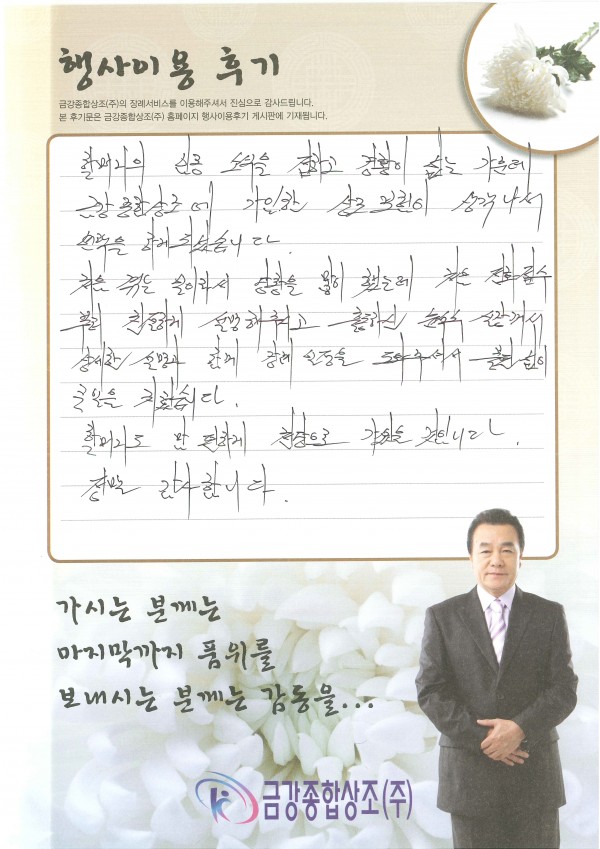 행사이용 후기
금강종합상조(주)의 장례서비스를 이용해주셔서 진심으로 감사드립니다.
본 후기문은 금강종합상조(주) 홈페이지 행사이용후기 게시판에 기재됩니다.
할머니의 임종 소식을 접하고 경황이 없는 가운데
금강종합상조에 가입한 상조보험이 생각나서
연락을 하게 되었습니다.
처음 겪는 일이라서 당황을 많이 했는데 처음 전화 접수
부터 친절하게 설명해주시고 출동하신 실장께서
상세한 설명과 함께 장례 일정을 도와주셔서 불편 없이
큰일을 치렀습니다.
할머니도 맘 편하게 천당으로 가셨을 것입니다.
정말 감사합니다.
가시는 분께는
마지막까지 품위를
보내시는 분께는 감동을...
금강종합상조(주)